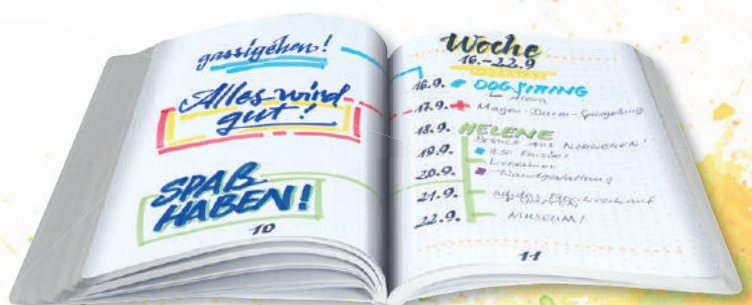 gassigehen!
Alles wird
gut!
SPAß
HABEN!
10
Woche
16.–22.9
16.9. DOGSITTING
17.9. Magen-Darm-Spiegelung
18.9. HELENE
BESUCH AUS NORWEGEN!
19.9.
20.9.
21.9. adidas
22.9. MUSEUM!
11